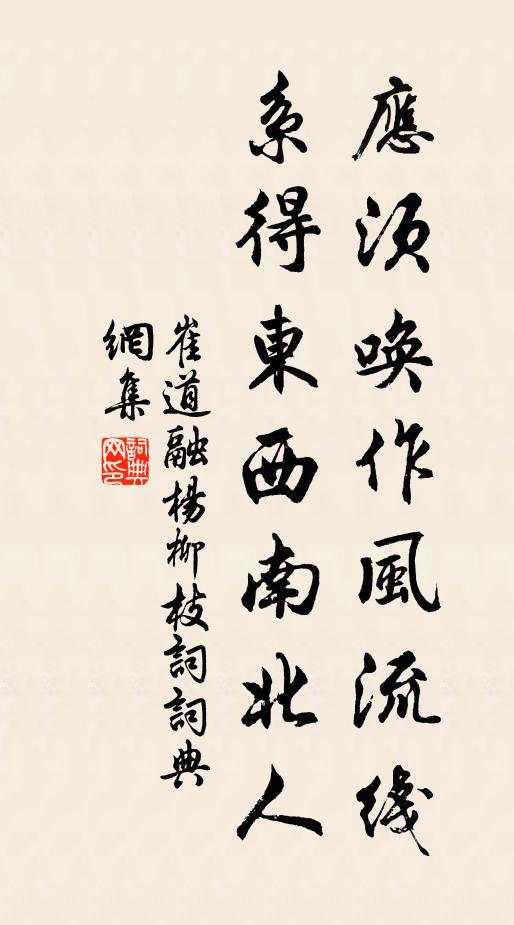 應須喚作風流綫
系得東西南北人
崔道融楊柳枝詞詞典
網集
詞典網印